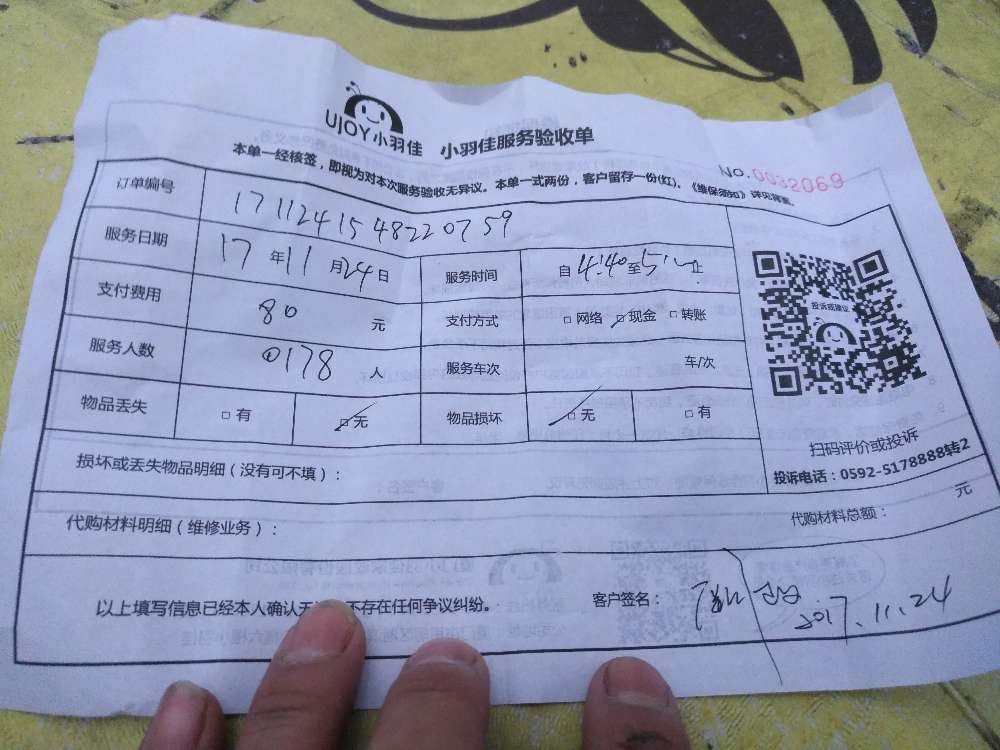 UJOY小羽佳 小羽佳服务验收单
No.0032069
本单一经核签，即视为对本次服务验收无异议。本单一式两份，客户留存一份(红)。《维保须知》详见背面。
订单编号 1711241548220759
服务日期 17年11月24日 服务时间 自4:40至5:止
支付费用 80元 支付方式 □网络 □现金 □转账
服务人数 0178人 服务车次 车/次
物品丢失 □有 □无 物品损坏 □无 □有
投诉或建议
扫码评价或投诉
投诉电话：0592-5178888转2
损坏或丢失物品明细（没有可不填）：
代购材料明细（维修业务）： 代购材料总额： 元
以上填写信息已经本人确认无 不存在任何争议纠纷。 客户签名：
2017.11.24